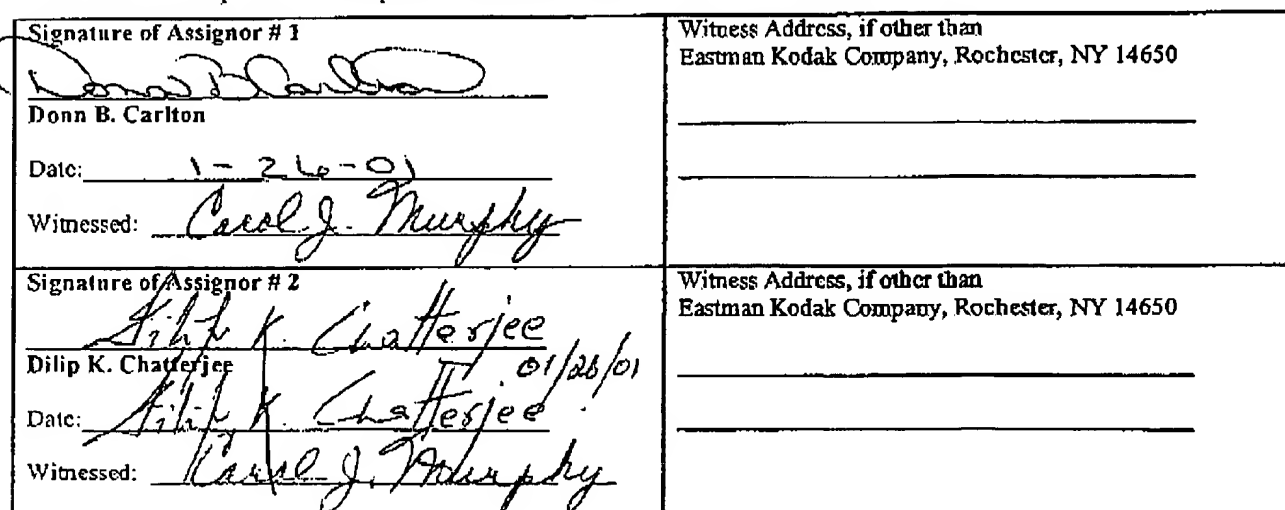 Signature of Assignor # 1
Donn B. Carlton
Donn B. Carlton
Date: 1-26-01
Witnessed: Carol J. Murphy
Witness Address, if other than
Eastman Kodak Company, Rochester, NY 14650
Signature of Assignor # 2
Dilip K. Chatterjee
Dilip K. Chatterjee 01/26/01
Date: Dilip K. Chatterjee
Witnessed: Carol J. Murphy
Witness Address, if other than
Eastman Kodak Company, Rochester, NY 14650